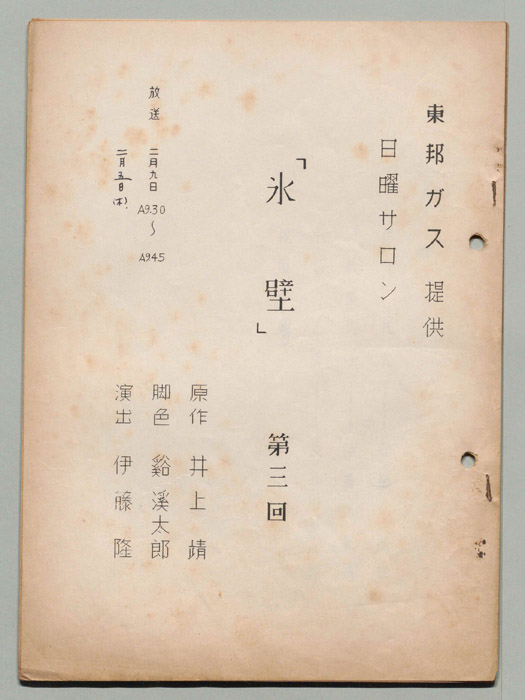 東邦ガス 提供
日曜サロン
「氷壁」 第三回
原作 井上靖
脚色 谿渓太郎
演出 伊藤隆
放送 二月九日 A9.30〜A9.45
二月五日(木)